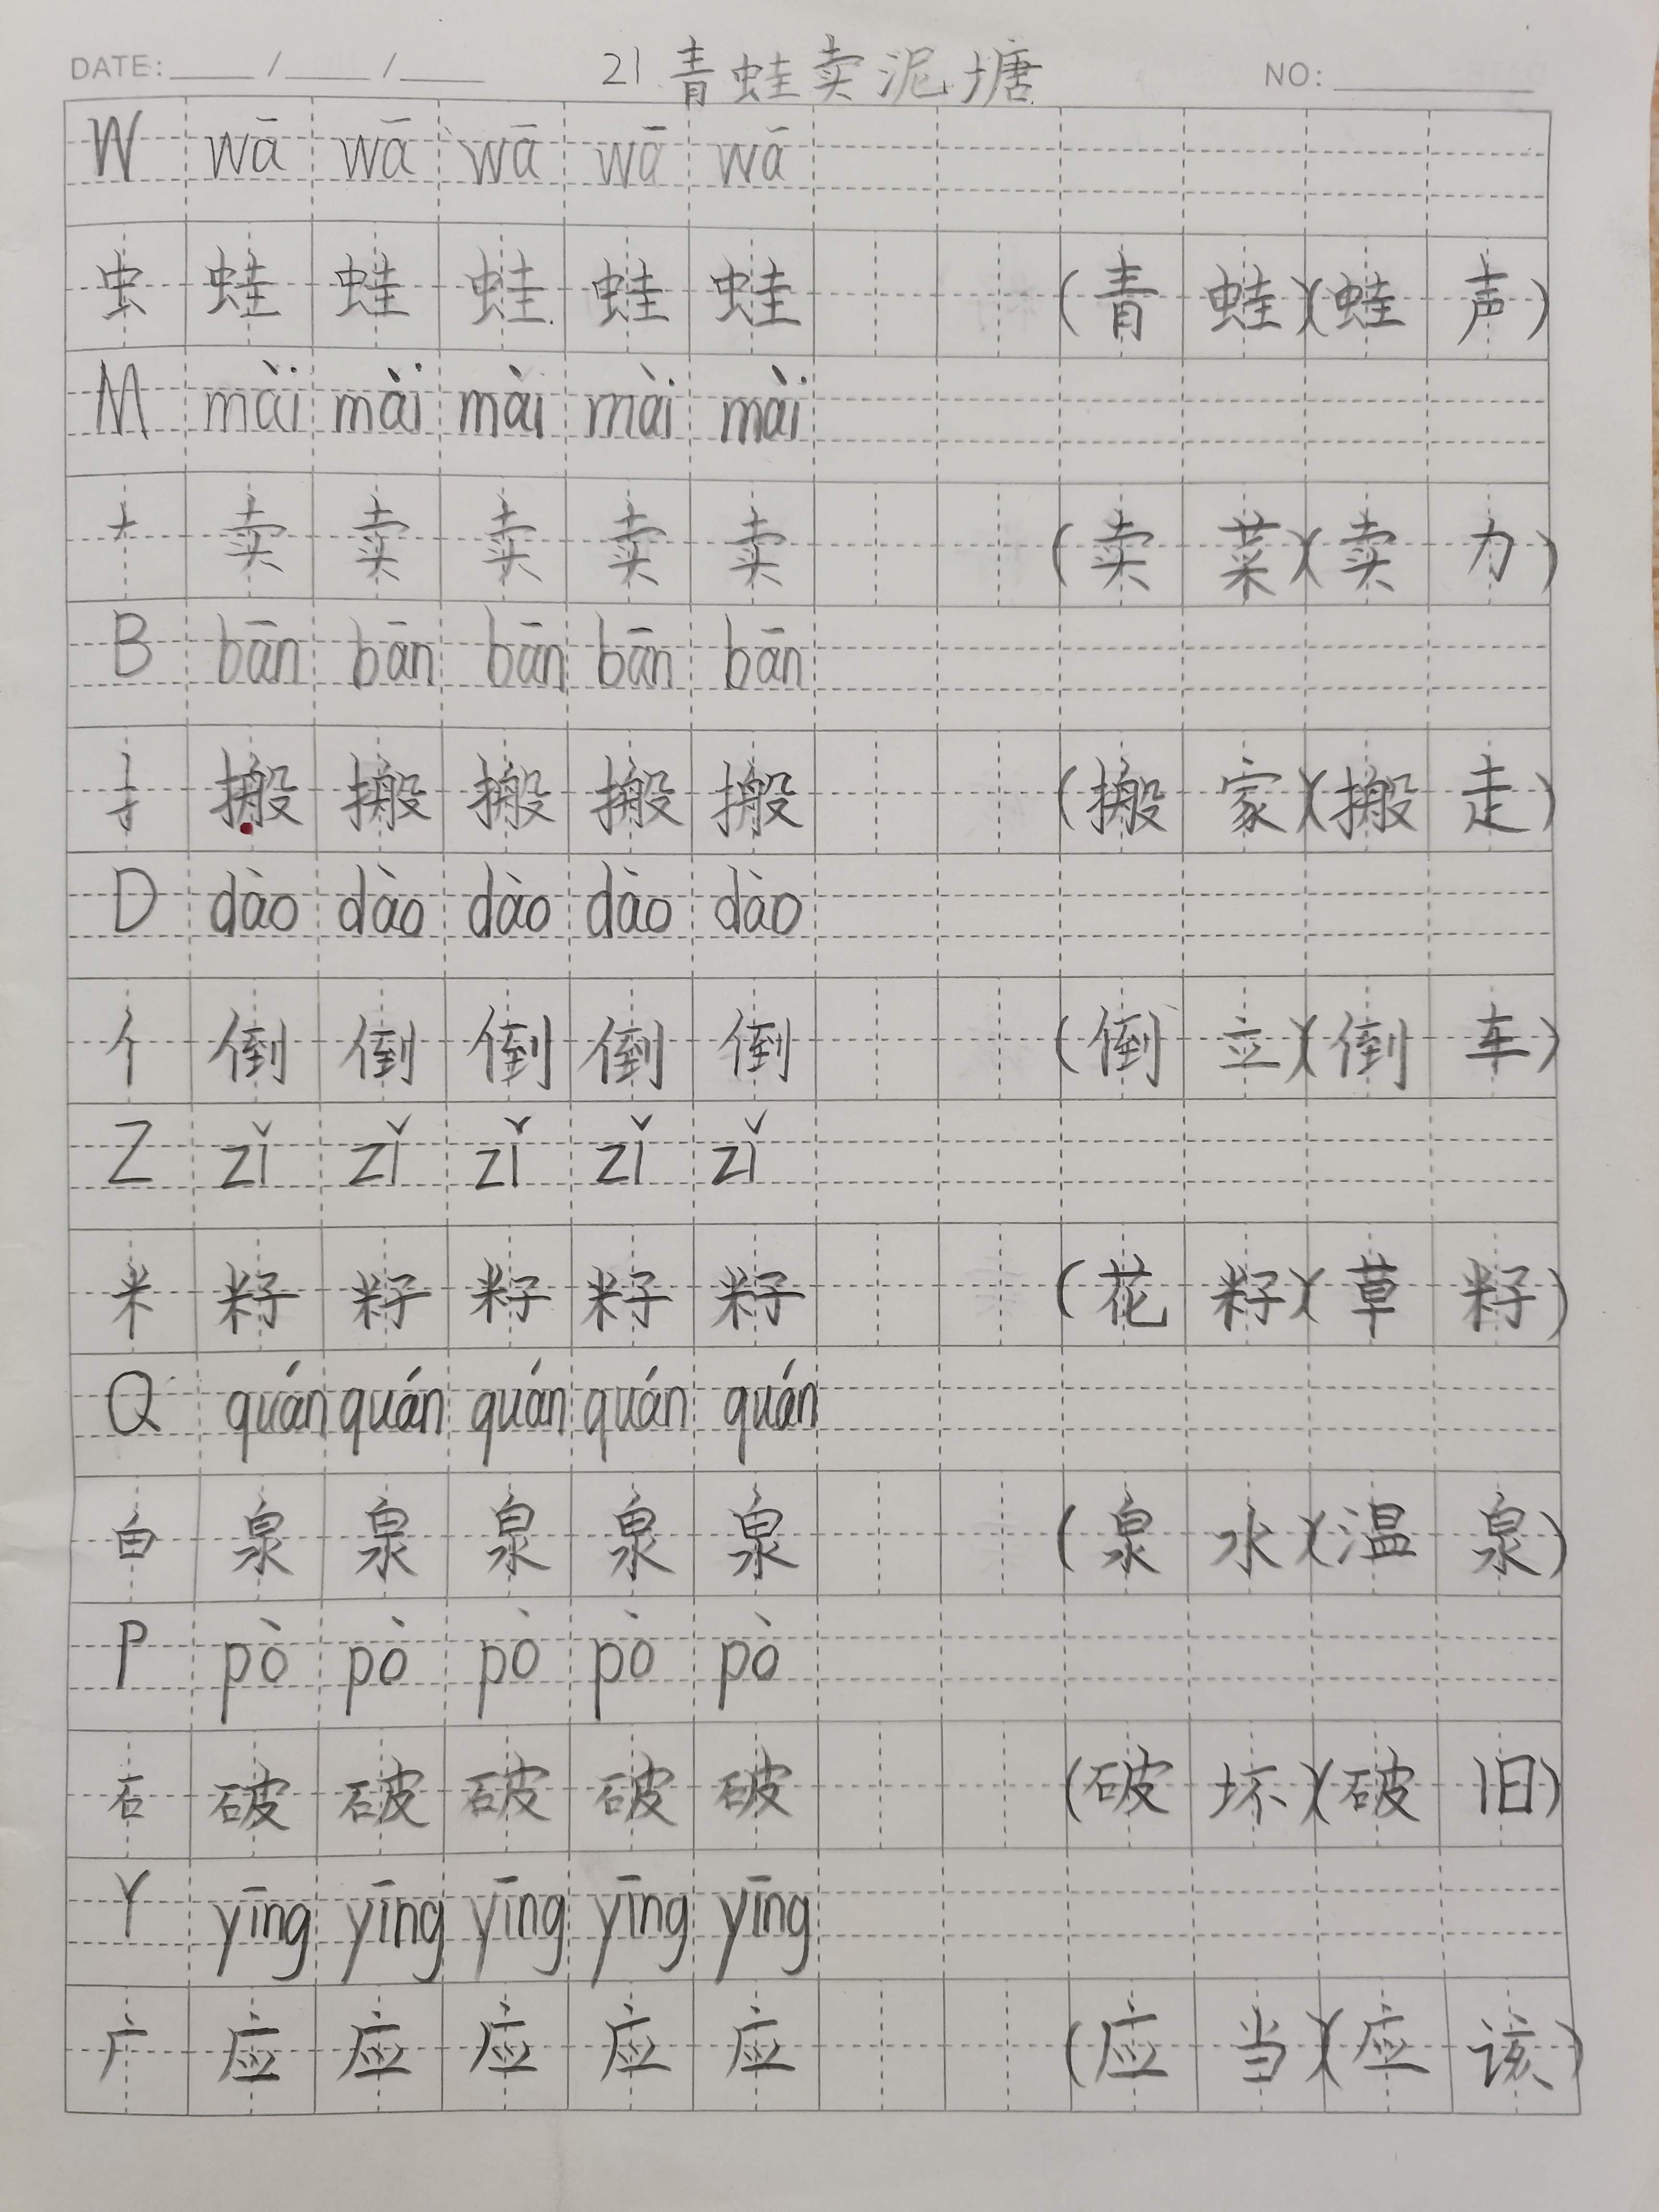 DATE: ____ / ____ / ____ 21 青蛙卖泥塘 NO: ________
W wā wā wā wā wā
虫 蛙 蛙 蛙 蛙 蛙 (青蛙)(蛙声)
M mài mài mài mài mài
十 卖 卖 卖 卖 卖 (卖菜)(卖力)
B bān bān bān bān bān
扌 搬 搬 搬 搬 搬 (搬家)(搬走)
D dào dào dào dào dào
亻 倒 倒 倒 倒 倒 (倒立)(倒车)
Z zǐ zǐ zǐ zǐ zǐ
米 籽 籽 籽 籽 籽 (花籽)(草籽)
Q quán quán quán quán quán
白 泉 泉 泉 泉 泉 (泉水)(温泉)
P pò pò pò pò pò
石 破 破 破 破 破 (破坏)(破旧)
Y yīng yīng yīng yīng yīng
广 应 应 应 应 应 (应当)(应该)